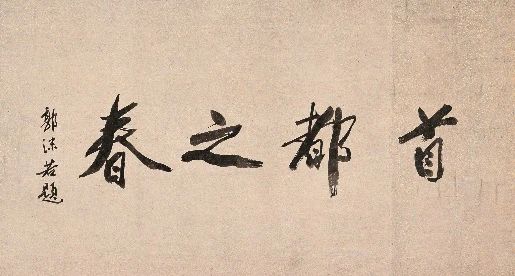 首都之春
郭沫若題